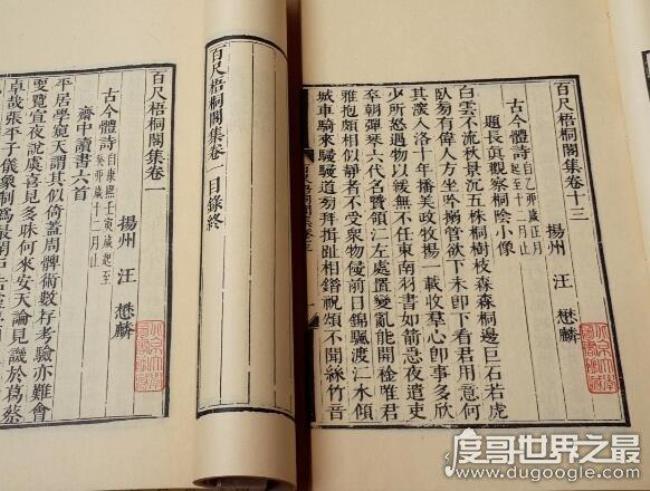 百尺梧桐閣集卷十三
揚州 汪 懋麟
古今體詩 自乙卯歲正月
起至十二月止
題長眞觀察桐陰小像
白雲不流秋景沉五株桐樹枝森森桐邊巨石若虎
臥匆有偉人方坐吟搦管欲下未卽下看君用意何
其深入洛十年播美政牧揚一載收羣心卽事多欣
少所怒遇物以緩無不任東南羽書如箭急夜遣束
卒朝彈琴六代名賢領江左處置變亂能開襟唯君
雅抱頗相似不受眾物侵前日錦颿渡江水傾
城車騎來駸駸道芻拜揖趾相錯祝頌不聞絲竹音
百尺梧桐閣集卷一目錄終
百尺梧桐閣集卷一
揚州 汪 懋麟
古今體詩 自康熙壬寅歲起至
癸卯歲十二月止
齋中讀書六首
平居學窺天謂其似倚蓋周髀術數存考驗亦難會
更覽宣夜說虞喜見多昧何來安天論見譏於葛蔡
卓哉張平子儀象制爲最
度哥世界之最
www.dugoogle.com